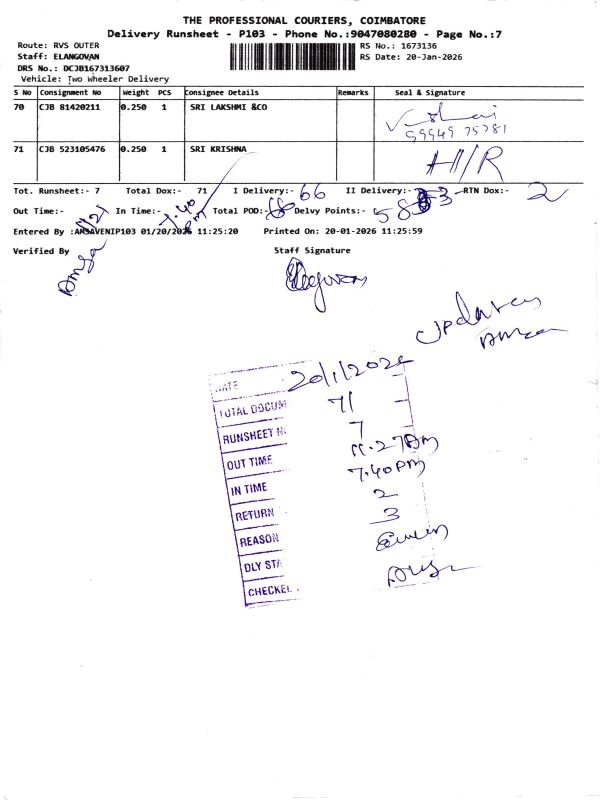 THE PROFESSIONAL COURIERS, COIMBATORE
Delivery Runsheet - P103 - Phone No.:9047080280 - Page No.:7
Route: RVS OUTER
Staff: ELANGOVAN
DRS No.: DCJB167313607
Vehicle: Two Wheeler Delivery
RS No.: 1673136
RS Date: 20-Jan-2026
S No Consignment No Weight PCS Consignee Details Remarks Seal & Signature
70 CJB 81420211 0.250 1 SRI LAKSHMI &CO
59949 75781
71 CJB 523105476 0.250 1 SRI KRISHNA H/R
Tot. Runsheet:- 7 Total Dox:- 71 I Delivery:- 66 II Delivery:- 3 RTN Dox:- 2
Out Time:- In Time:- 7.40 pm Total POD:- Delvy Points:- 58
Entered By :AMSAVENIP103 01/20/2026 11:25:20 Printed On: 20-01-2026 11:25:59
Verified By Staff Signature
DATE 20/1/2026
TOTAL DOCUM 71
RUNSHEET N 7
OUT TIME 11.27AM
IN TIME 7.40PM
RETURN 2
REASON 3
DLY STA
CHECKE